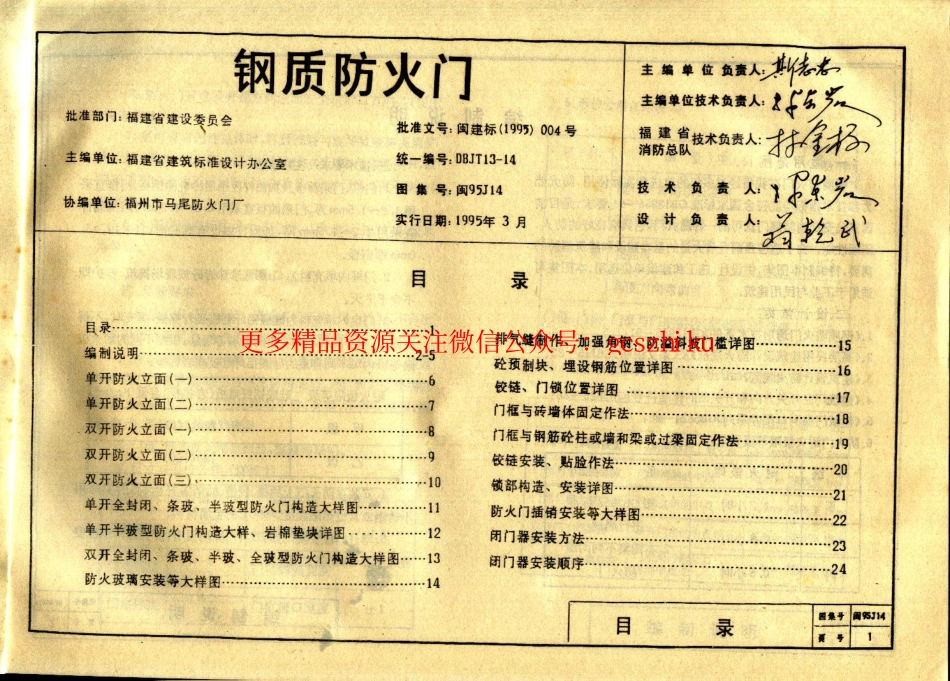 钢质防火门
批准部门：福建省建设委员会
主编单位：福建省建筑标准设计办公室
协编单位：福州市马尾防火门厂
批准文号：闽建标(1995)004号
统一编号：DBJT13-14
图集号：闽95J14
实行日期：1995年3月
主编单位负责人：
主编单位技术负责人：
福建省消防总队技术负责人：
技术负责人：
设计负责人：
目录
目录 1
编制说明 2-5
单开防火立面(一) 6
单开防火立面(二) 7
双开防火立面(一) 8
双开防火立面(二) 9
双开防火立面(三) 10
单开全封闭、条玻、半玻型防火门构造大样图 11
单开半玻型防火门构造大样、岩棉垫块详图 12
双开全封闭、条玻、半玻、全玻型防火门构造大样图 13
防火玻璃安装等大样图 14
排气缝制作、加强角钢、防溢斜坡门槛详图 15
砼预制块、埋设钢筋位置详图 16
铰链、门锁位置详图 17
门框与砖墙体固定作法 18
门框与钢筋砼柱或墙和梁或过梁固定作法 19
铰链安装、贴脸作法 20
锁部构造、安装详图 21
防火门插销安装等大样图 22
闭门器安装方法 23
闭门器安装顺序 24
更多精品资源关注微信公众号：geszhiku
目录
图集号 闽95J14
页号 1